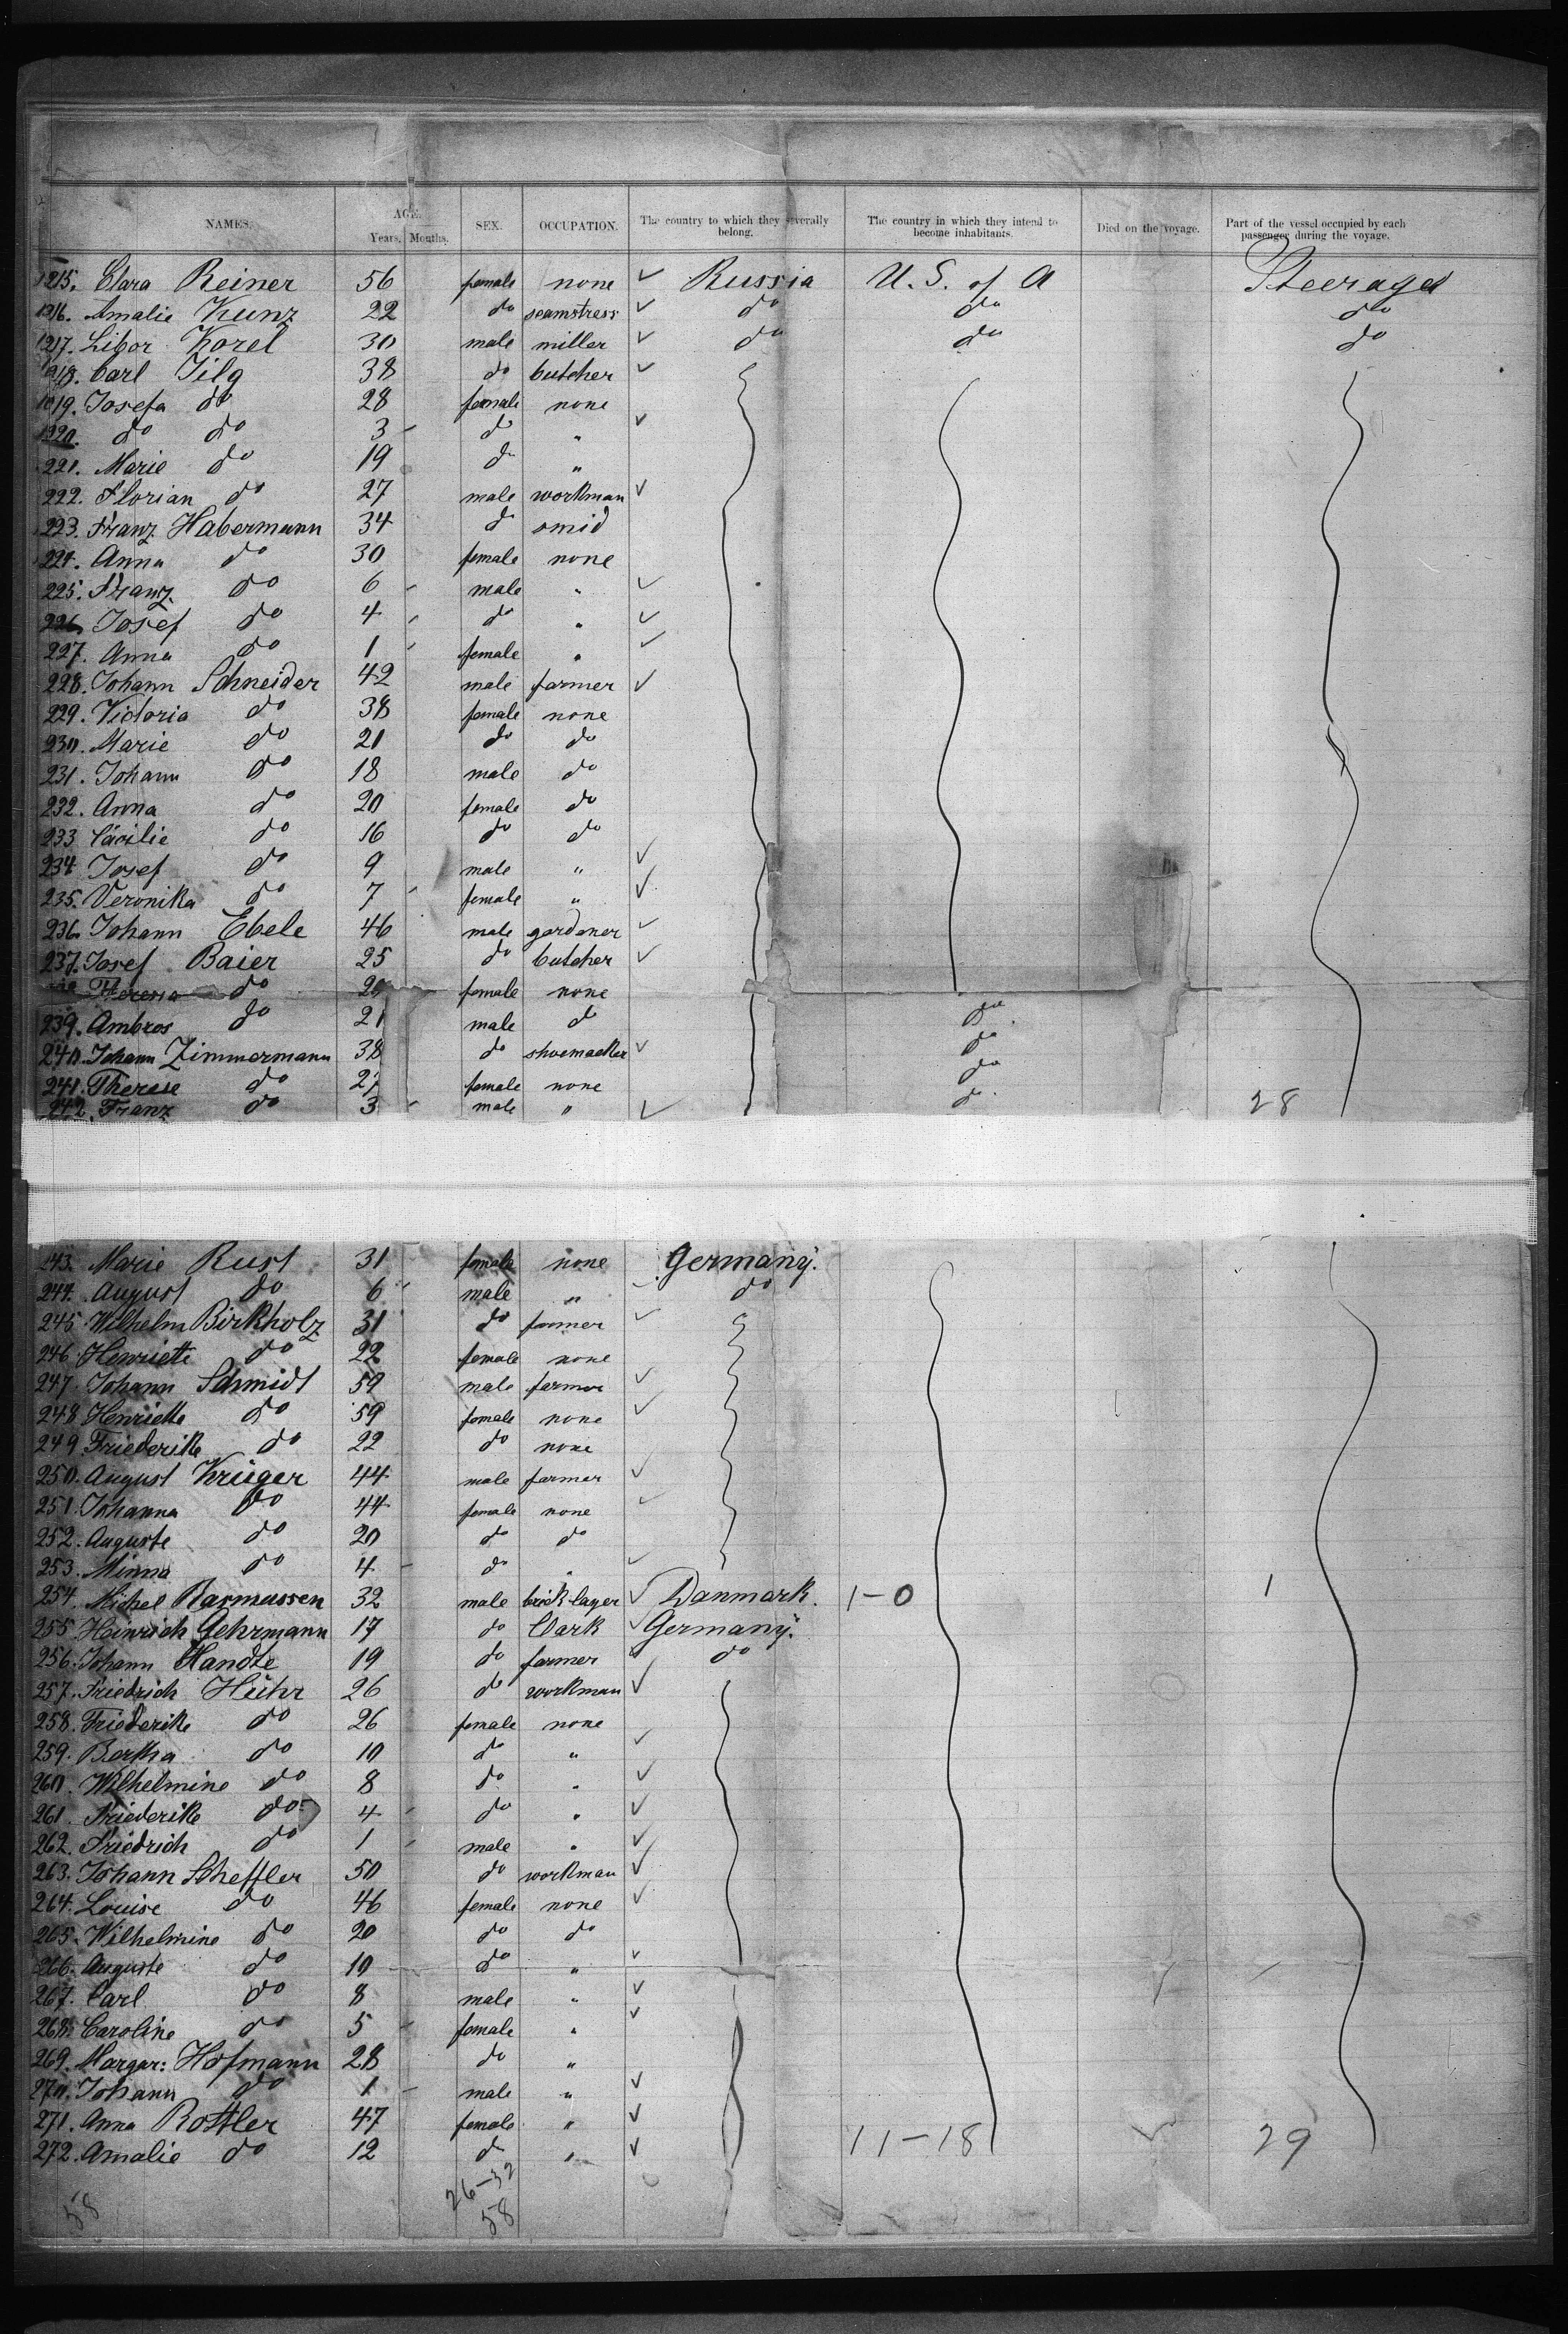 NAMES. AGE. SEX. OCCUPATION. The country to which they severally belong. The country in which they intend to become inhabitants. Died on the voyage. Part of the vessel occupied by each passenger during the voyage.
Years. Months.
1215. Clara Reiner 56 female none ✓ Russia U.S. of A Steerage
1216. Amalie Kunz 22 do seamstress ✓ do do do
1217. Libor Korel 30 male miller ✓ do do do
1218. Carl Jilg 38 do butcher ✓
1219. Josefa do 28 female none
1220. do do 3 do " ✓
221. Marie do 19 do "
222. Florian do 27 male workman ✓
223. Franz Habermann 34 do smid
224. Anna do 30 female none
225. Franz do 6 male " ✓
226. Josef do 4 do " ✓
227. Anna do 1 female " ✓
228. Johann Schneider 42 male farmer ✓
229. Victoria do 38 female none
230. Marie do 21 do do
231. Johann do 18 male do
232. Anna do 20 female do
233 Cäcilie do 16 do do
234 Josef do 9 male " ✓
235. Veronika do 7 female " ✓
236. Johann Ebele 46 male gardener ✓
237. Josef Baier 25 do butcher ✓
Theresia do female none
239. Ambros do 21 male do do
240. Johann Zimmermann 38 do shoemacker ✓ do
241. Therese do 27 female none do
242. Franz do 3 male " ✓ do 28
243. Marie Rust 31 female none Germany.
244. August do 6 male " ✓ do
245. Wilhelm Birkholz 31 do farmer ✓
246 Henriette do 22 female none
247. Johann Schmidt 59 male farmer ✓
248 Henriette do 59 female none ✓
249 Friederike do 22 do none
250. August Krüger 44 male farmer ✓
251. Johanna do 44 female none ✓
252. Auguste do 20 do do
253. Minna do 4 do " ✓
254. Michel Rasmussen 32 male brick layer ✓ Danmark. 1-0 1
255 Heinrich Gehrmann 17 do Clark ✓ Germany.
256. Johann Handte 19 do farmer ✓ do
257. Friedrich Hühr 26 do workman ✓
258. Friederike do 26 female none
259. Bertha do 10 do " ✓
260. Wilhelmine do 8 do " ✓
261. Friederike do 4 do " ✓
262. Friedrich do 1 male " ✓
263. Johann Scheffler 50 do workman ✓
264. Louise do 46 female none ✓
265. Wilhelmine do 20 do do
266. Auguste do 10 do " ✓
267. Carl do 8 male " ✓
268. Caroline do 5 female " ✓
269. Margar: Hofmann 28 do "
270. Johann do 1 male " ✓
271. Anna Rottler 47 female " ✓
272. Amalie do 12 do " ✓ 11-18 29
58 26-32
58